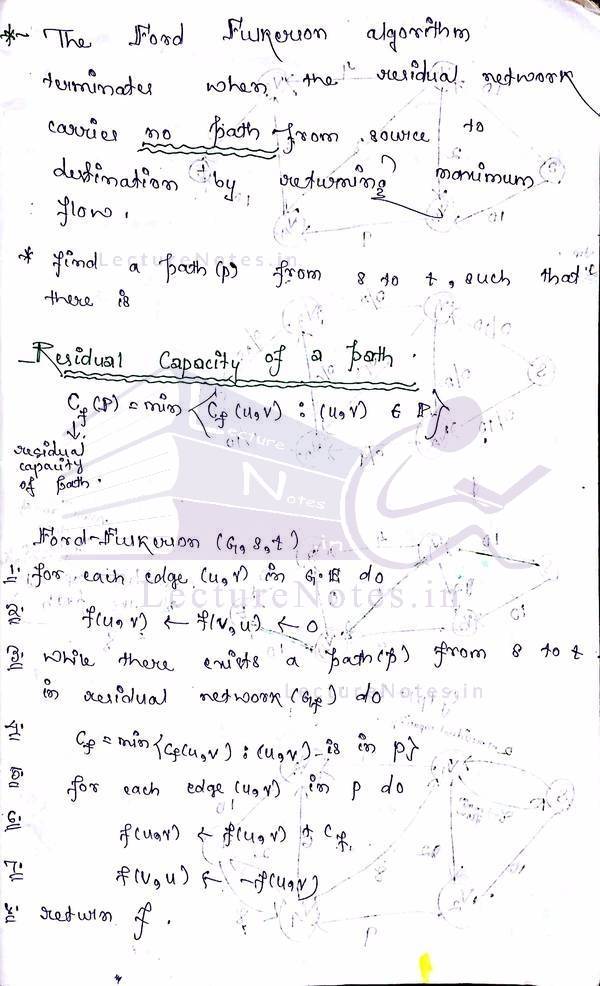 * The Ford Fulkerson algorithm
terminates when the residual network
carries no path from source to
destination by returning maximum
flow.
* find a path (p) from s to t, such that
there is
Residual Capacity of a path.
Cf (P) = min {Cf (u, v) : (u, v) ∈ P}
↓
residual
capacity
of path.
Ford-Fulkerson (G, s, t)
1. for each edge (u, v) in G.E do
2. f(u, v) ← f(v, u) ← 0
3. while there exists a path (p) from s to t
in residual network (Gf) do
4. Cf = min {Cf(u, v) : (u, v) is in p}
5. for each edge (u, v) in p do
6. f(u, v) ← f(u, v) + Cf
7. f(v, u) ← -f(u, v)
8. return f.
LectureNotes.in
Lecture
Notes
.in
LectureNotes.in
LectureNotes.in